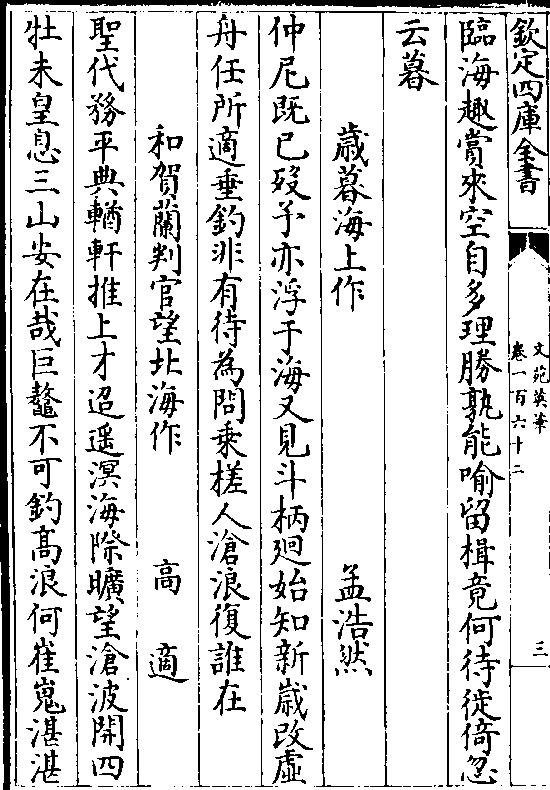 欽定四庫全書
文苑英華
卷一百六十二
三
臨海趣賞來空自多理勝孰能喻留楫竟何待徙倚忽
云暮
歲暮海上作 孟浩然
仲尼既已歿予亦浮于海又見斗柄廻始知新歲改虛
舟任所適垂釣非有待為問乘槎人滄浪復誰在
和賀蘭判官望北海作 高適
聖代務平典輶軒推上才迢遥溟海際曠望滄波開四
牡未皇息三山安在哉巨鼇不可釣高浪何崔嵬湛湛